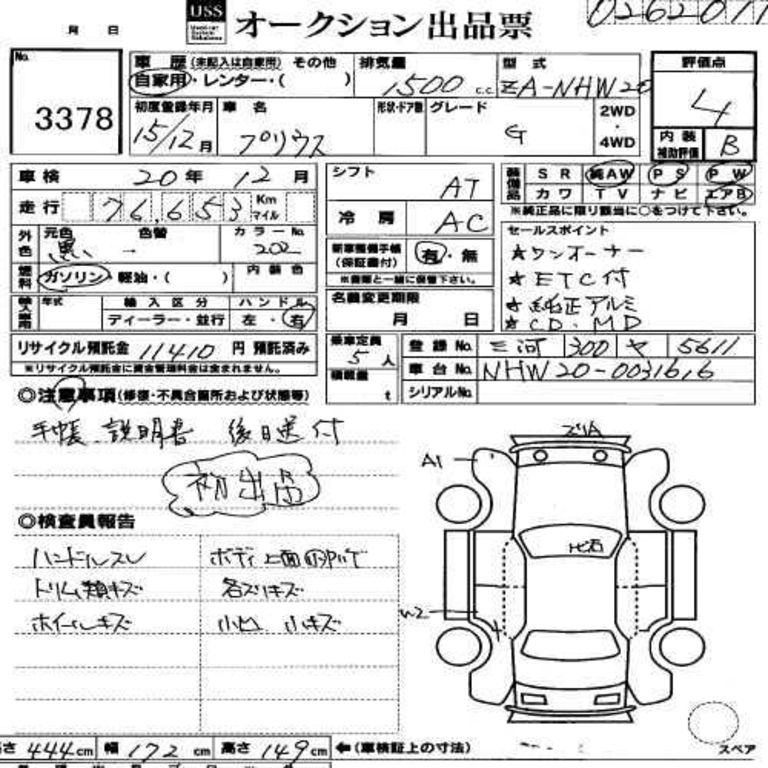 USS オークション出品票
月 日
No.
3378
車歴(未記入は自家用) その他
自家用・レンター・( )
排気量 1500 c.c.
型式 ZA-NHW20
評価点 4
内装補助評価 B
初度登録年月 15/12月
車名 プリウス
形状・ドア数
グレード G
2WD
・
4WD
車検 20年 12月
走行 76,653 Km マイル
外色 元色 黒い 色替 カラーNo. 202
燃料 ガソリン・軽油・( ) 内装色
輸入車用 年式 輸入区分 ハンドル
ディーラー・並行 左・右
リサイクル預託金 11410 円 預託済み
※リサイクル預託金に資金管理料金は含まれません。
シフト AT
冷房 AC
新車整備手帳(保証書付) 有・無
※書類と一緒に保管下さい。
名義変更期限
月 日
装備品 SR 純AW PS PW
カワ TV ナビ エアB
※純正品に限り該当に○をつけて下さい。
セールスポイント
★ワンオーナー
★ETC付
★純正アルミ
★CD・MD
乗車定員 5人
積載量 t
登録No. 三河 300 ヤ 5611
車台No. NHW20-0031616
シリアルNo.
◎注意事項(修復・不具合箇所および状態等)
手帳、説明書 後日送付
初出品
◎検査員報告
ハンドルスレ
トリム類キズ
ホイールキズ
ボディ上面
各ズリキズ
小凹 小キズ
A1
ズリA
トビ石
W2
スペア
長さ 444cm 幅 172cm 高さ 149cm ←(車検証上の寸法)